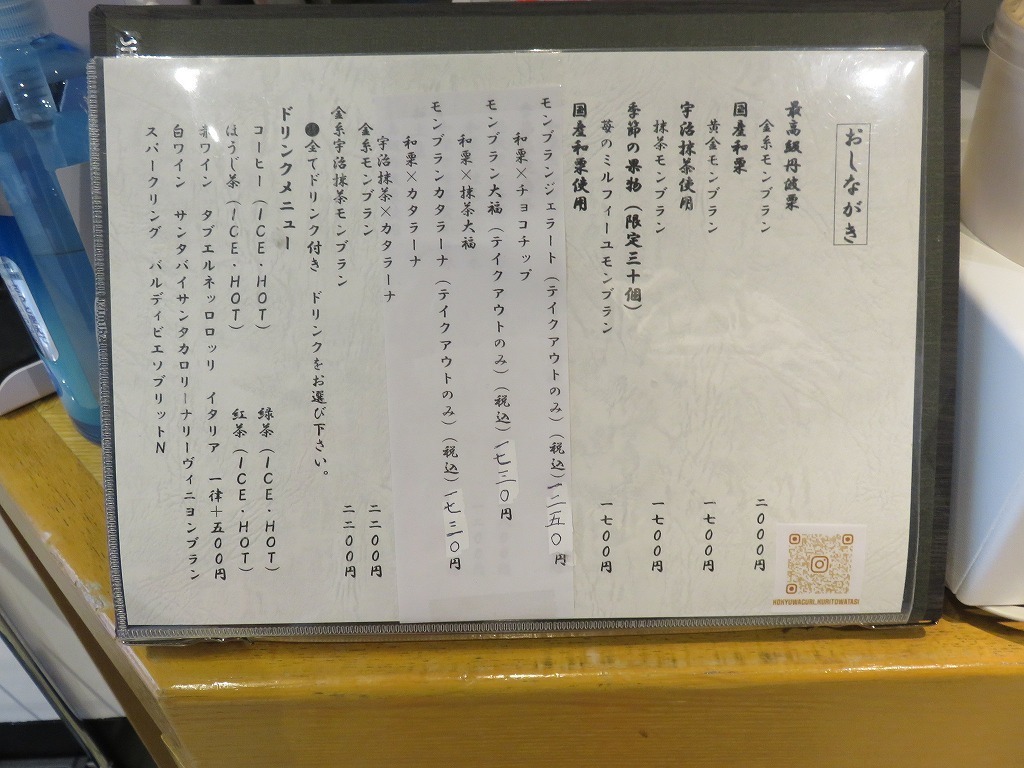 おしながき
最高級丹波栗
金糸モンブラン 二〇〇〇円
国産和栗
黄金モンブラン 一七〇〇円
宇治抹茶使用
抹茶モンブラン 一七〇〇円
季節の果物(限定三十個)
苺のミルフィーユモンブラン 一七〇〇円
国産和栗使用
モンブランジェラート(テイクアウトのみ)(税込)一二五〇円
和栗×チョコチップ
モンブラン大福(テイクアウトのみ)(税込)一七三〇円
和栗×抹茶大福
モンブランカタラーナ(テイクアウトのみ)(税込)一七三〇円
和栗×カタラーナ
宇治抹茶×カタラーナ
金糸モンブラン 二二〇〇円
金糸宇治抹茶モンブラン 二二〇〇円
●全てドリンク付き ドリンクをお選び下さい。
ドリンクメニュー
コーヒー(ICE・HOT) 緑茶(ICE・HOT)
ほうじ茶(ICE・HOT) 紅茶(ICE・HOT)
赤ワイン タブエルネッロロッソ イタリア 一律+五〇〇円
白ワイン サンタバイサンタカロリーナリーヴィニヨンブラン
スパークリング バルディビエソブリットN
HOKYUWAGURI.NORITOWATASI